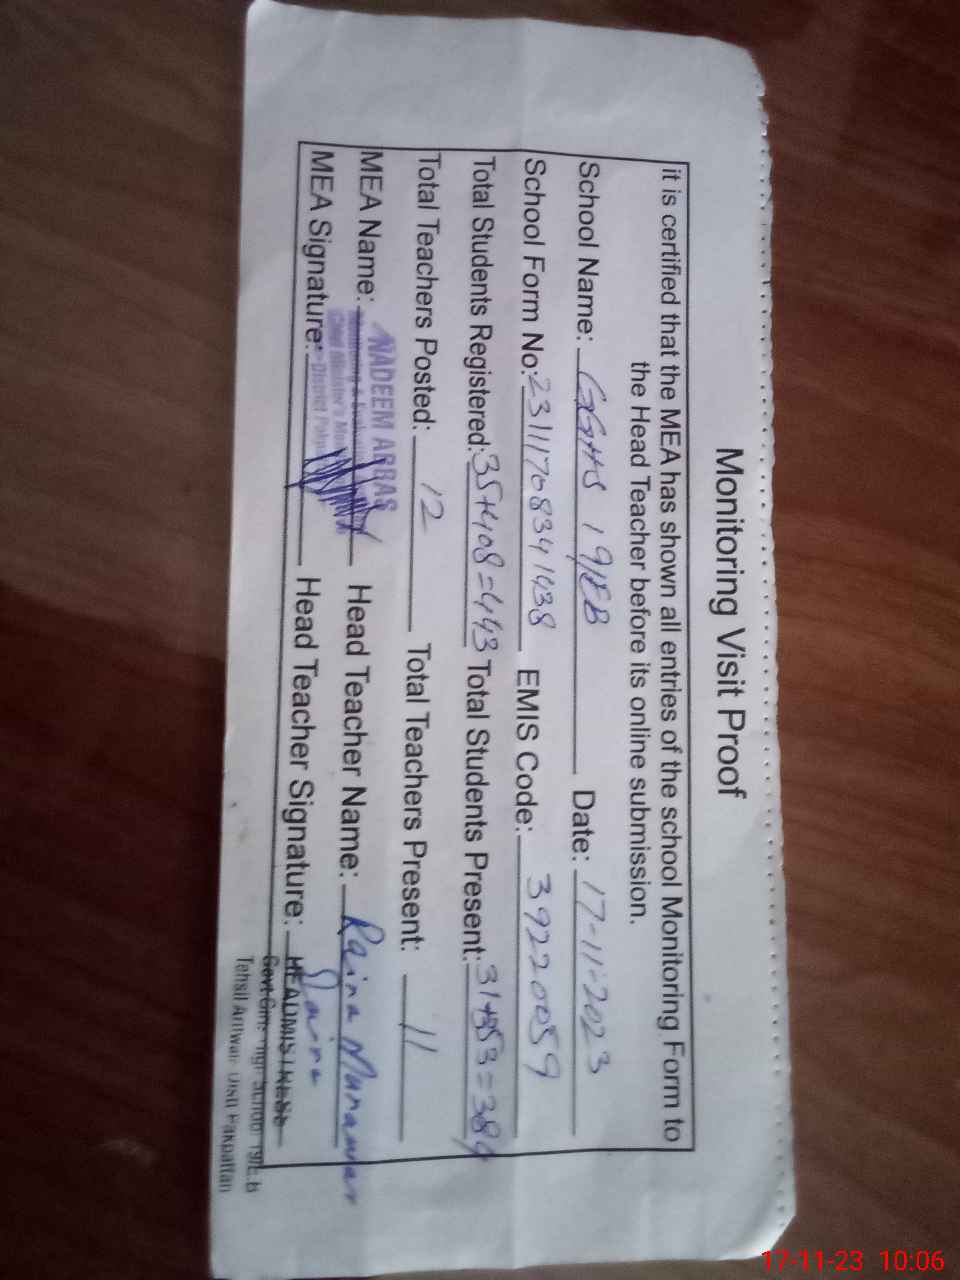 Monitoring Visit Proof
it is certified that the MEA has shown all entries of the school Monitoring Form to
the Head Teacher before its online submission.
School Name: GGHS 19/EB Date: 17-11-2023
School Form No: 231117083411438 EMIS Code: 39220059
Total Students Registered: 35+408=443 Total Students Present: 31+353=384
Total Teachers Posted: 12 Total Teachers Present: 11
MEA Name: NADEEM ABBAS Head Teacher Name: Raina Munawar
Monitoring & Evaluation
Chief Minister's
MEA Signature: District Head Teacher Signature: Raina
HEADMISTRESS
Govt Girls High School 19/E.B
Tehsil Arifwala Distt Pakpattan
17-11-23 10:06